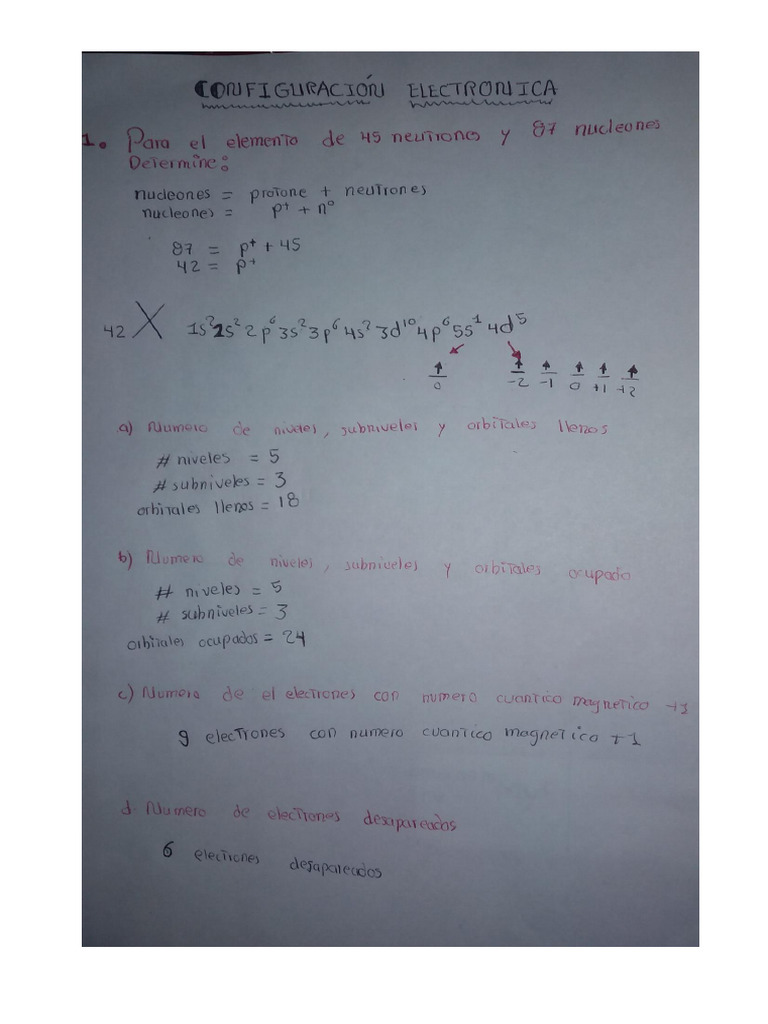 CONFIGURACIÓN ELECTRONICA
1. Para el elemento de 45 neutrones y 87 nucleones
Determine:
nucleones = protone + neutrones
nucleones = p⁺ + n⁰
87 = p⁺ + 45
42 = p⁺
42 X 1s² 2s² 2p⁶ 3s² 3p⁶ 4s² 3d¹⁰ 4p⁶ 5s¹ 4d⁵
0 -2 -1 0 +1 +2
a) Numero de niveles, subniveles y orbitales llenos
# niveles = 5
# subniveles = 3
orbitales llenos = 18
b) Numero de niveles, subniveles y orbitales ocupado
# niveles = 5
# subniveles = 3
orbitales ocupados = 24
c) Numero de el electrones con numero cuantico magnetico +1
9 electrones con numero cuantico magnetico +1
d Numero de electrones desapareados
6 electrones desapareados